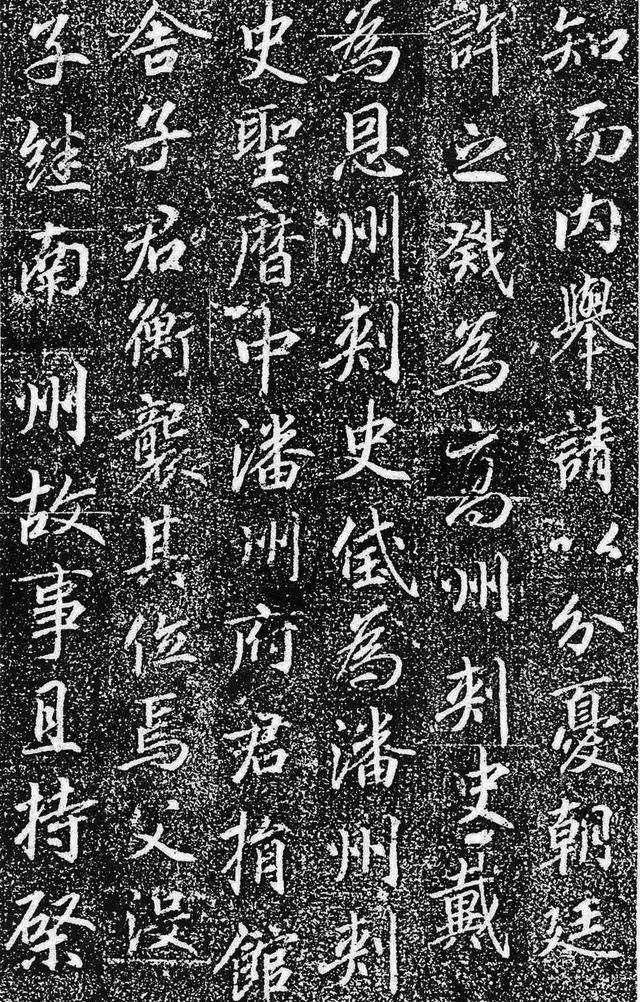 知而内舉請以分憂朝廷
許之戣為高州刾史戴
為恩州刾史㑺為潘州刾
史聖曆中潘州府君捐館
舍子君衡襲其位焉父沒
子継南州故事且持棨